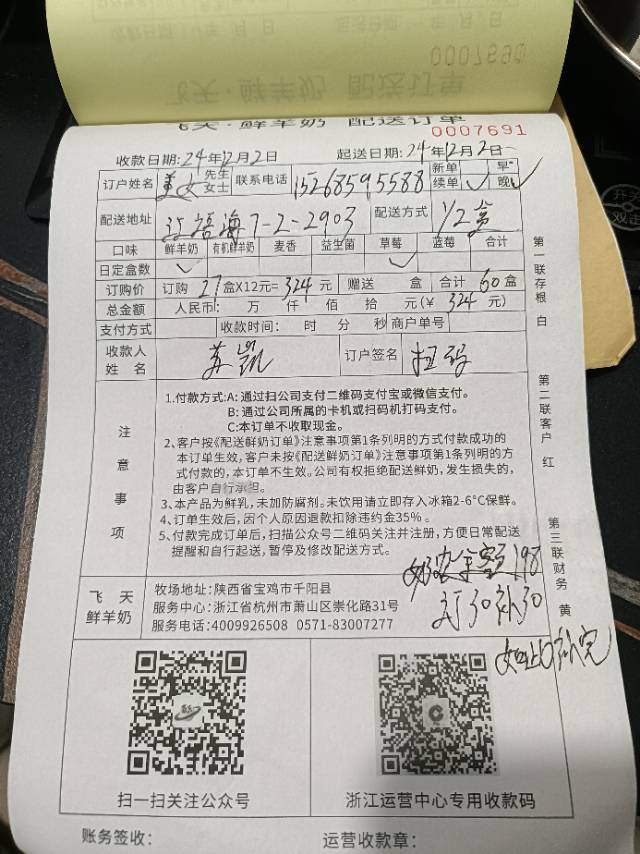 飞天·鲜羊奶 配送订单
0007691
收款日期:24年12月2日 起送日期:24年12月2日
订户姓名 美女 先生 女士 联系电话 15268595588 新单 续单 早 晚
配送地址 7-2-2903 配送方式 1/2盒
口味 鲜羊奶 有机鲜羊奶 麦香 益生菌 草莓 蓝莓 合计
日定盒数
订购价 订购 27 盒X12元= 324 元 赠送 盒 合计 60 盒
总金额 人民币: 万 仟 佰 拾 元(¥ 324 元)
支付方式 收款时间: 时 分 秒 商户单号
收款人姓名 苏凯 订户签名 扫码
注意事项
1.付款方式:A:通过扫公司支付二维码支付宝或微信支付。
B:通过公司所属的卡机或扫码机打码支付。
C:本订单不收取现金。
2、客户按《配送鲜奶订单》注意事项第1条列明的方式付款成功的
本订单生效,客户未按《配送鲜奶订单》注意事项第1条列明的方
式付款的,本订单不生效。公司有权拒绝配送鲜奶,发生损失的,
由客户自行承担。
3、本产品为鲜乳,未加防腐剂。未饮用请立即存入冰箱2-6°C保鲜。
4、订单生效后,因个人原因退款扣除违约金35%。
5、付款完成订单后,扫描公众号二维码关注并注册,方便日常配送
提醒和自行起送,暂停及修改配送方式。
198
订30补30
飞天鲜羊奶
牧场地址:陕西省宝鸡市千阳县
服务中心:浙江省杭州市萧山区崇化路31号
服务电话:4009926508 0571-83007277
扫一扫关注公众号 浙江运营中心专用收款码
账务签收: 运营收款章:
第一联存根 白
第二联客户 红
第三联财务 黄